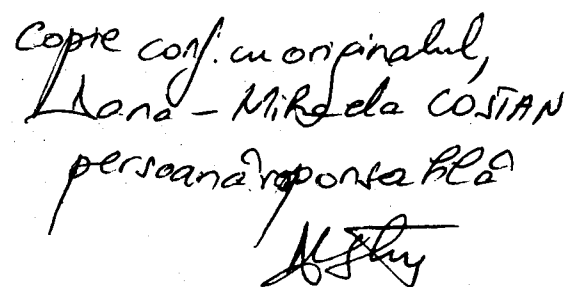 Copie conf. cu originalul,
Dana-Mihaela COSTAN
persoană responsabilă